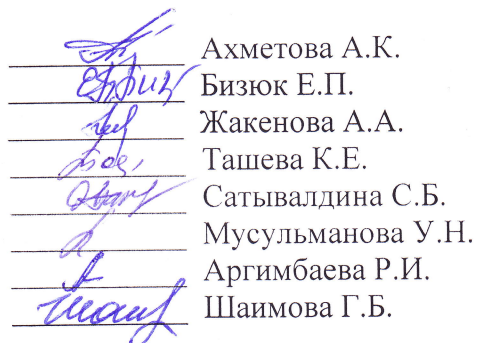 Ахметова А.К.
Бизюк Е.П.
Жакенова А.А.
Ташева К.Е.
Сатывалдина С.Б.
Мусульманова У.Н.
Аргимбаева Р.И.
Шаимова Г.Б.